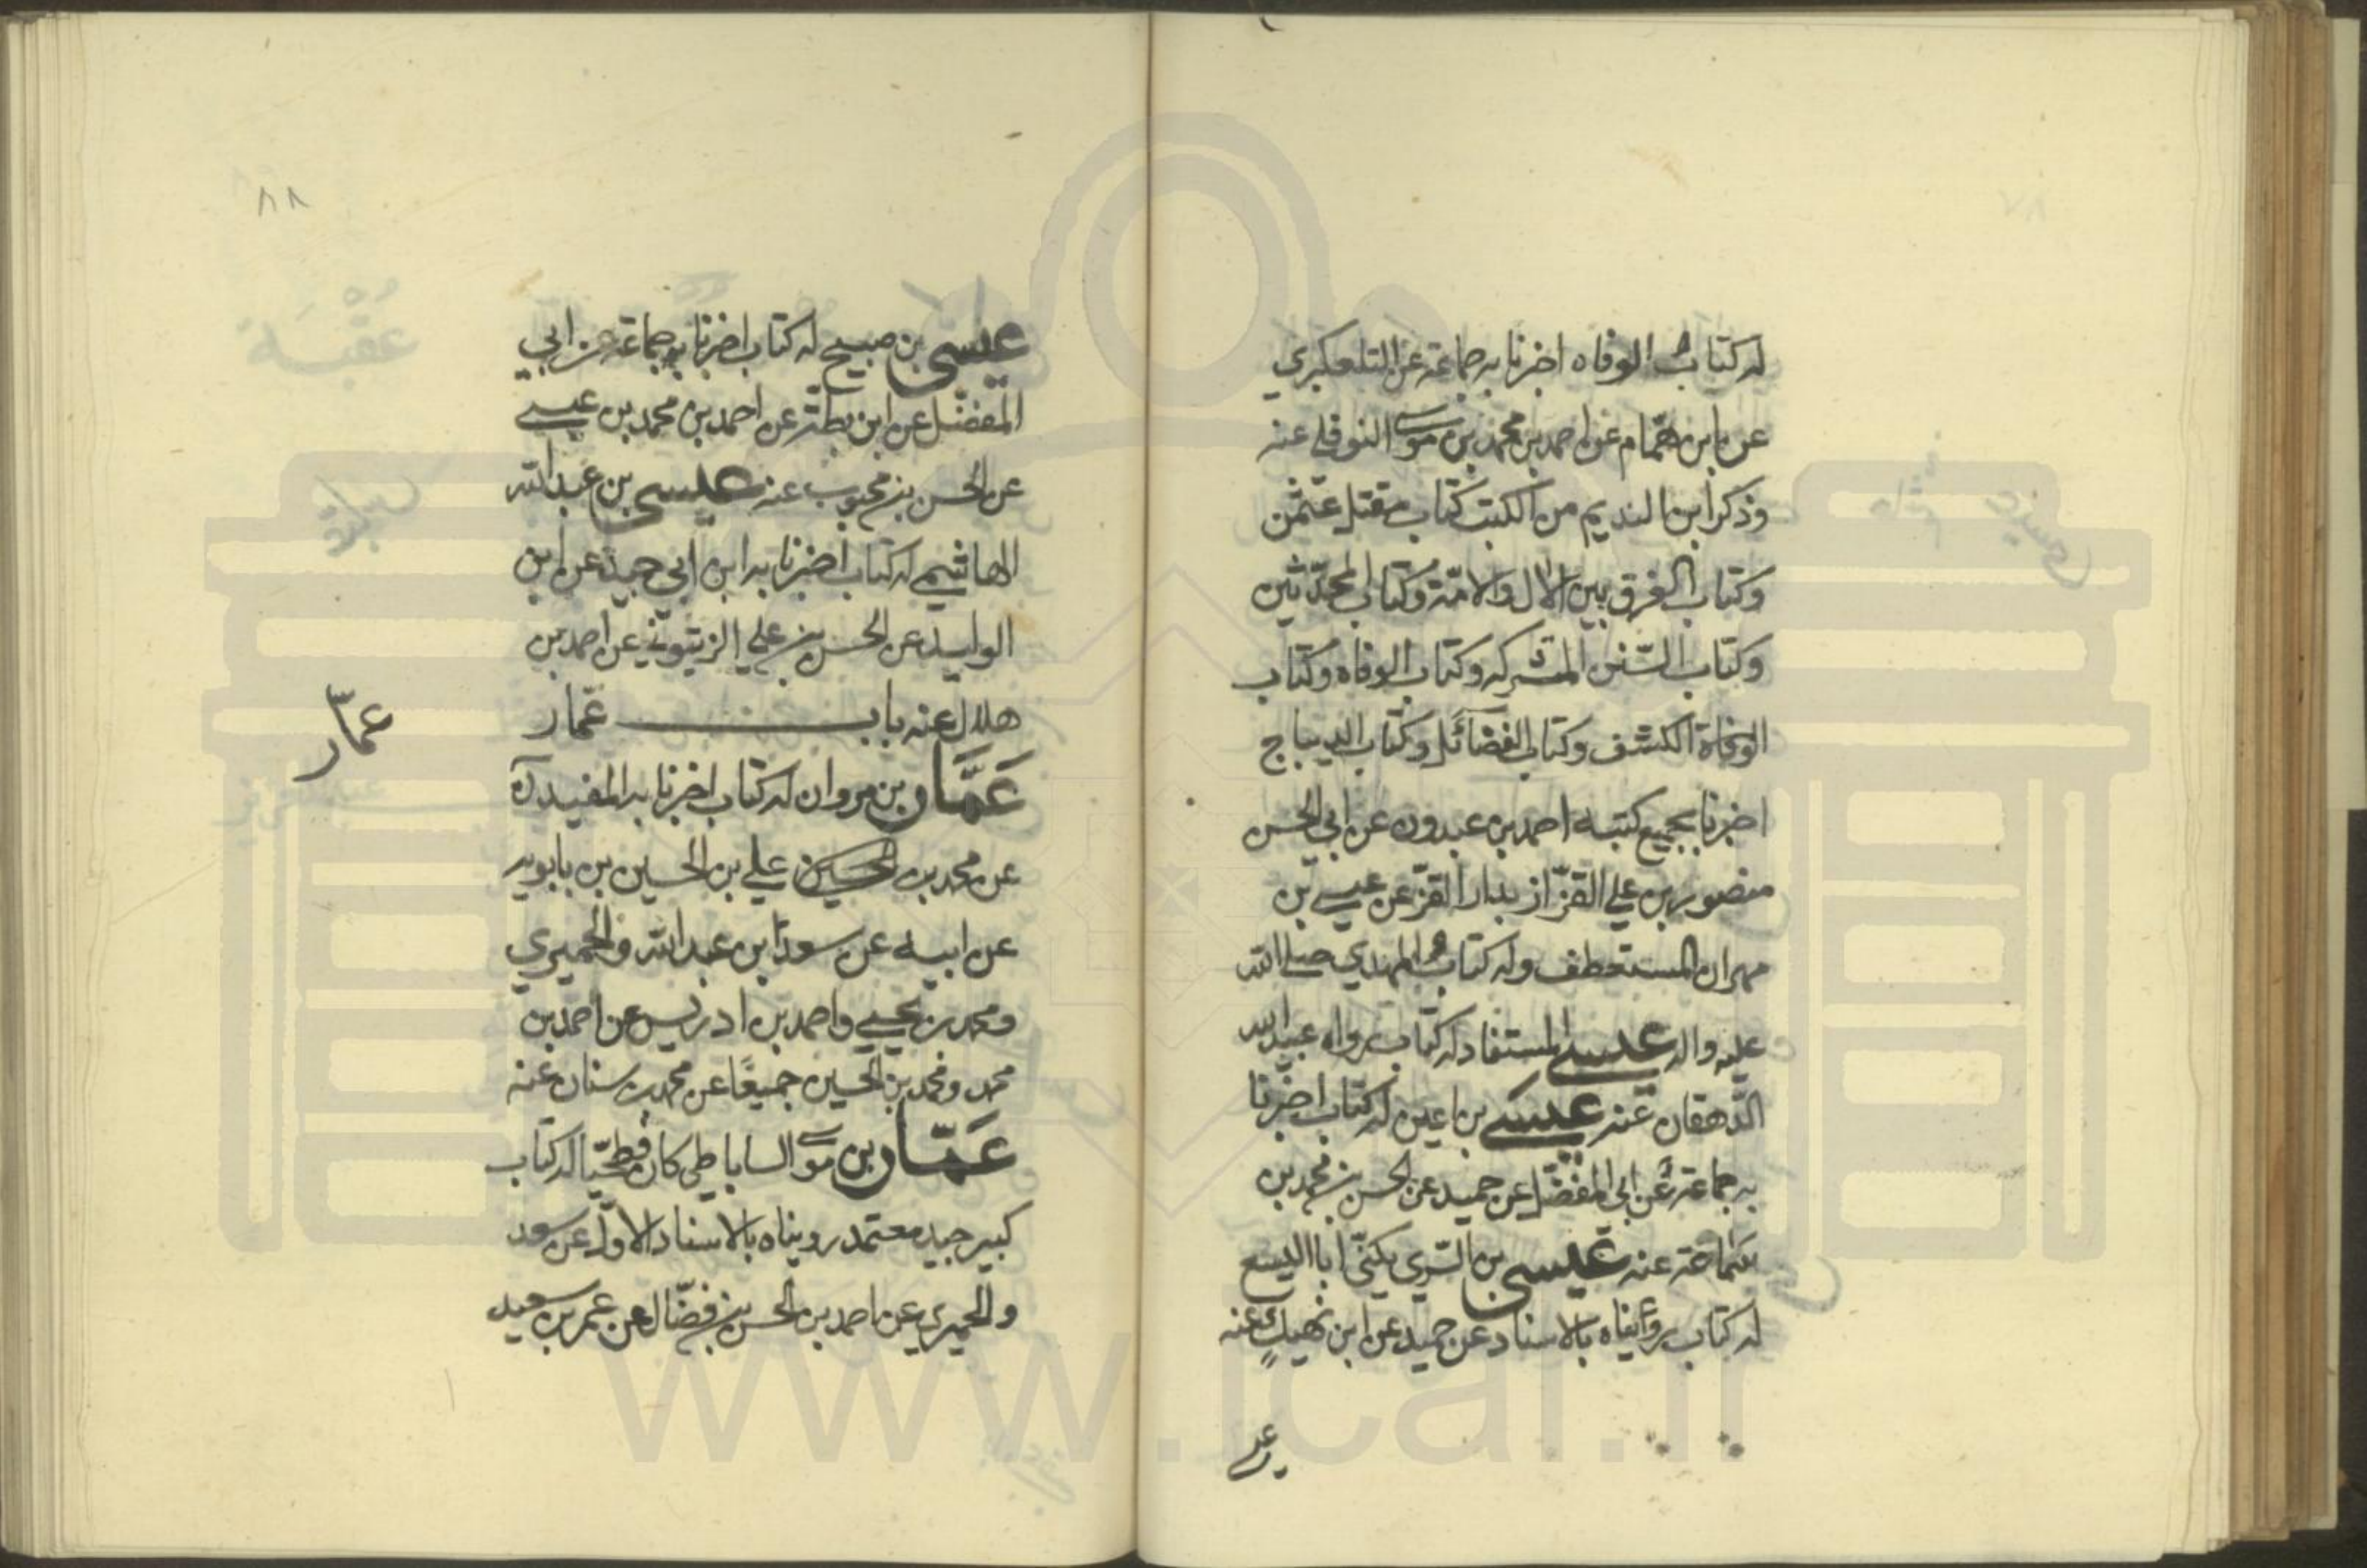 له كتاب الوفاه اخبرنا به جماعة عن التلعكبري
عن ابن همّام عن احمد بن محمد بن موسى النوفلي عنه
وذكر ابن النديم من الكتب كتاب مقتل عثمن
وكتاب الفرق بين الال والامّة وكتاب المحدّثين
وكتاب السّنن المشتركه وكتاب الوفاه وكتاب
الكشف وكتاب الفضائل وكتاب الديباج
اخبرنا بجميع كتبه احمد بن عبدون عن ابي الحسن
منصور بن علي القزّاز بدار القزّ عن عيسى بن
مهران المستعطف وله كتاب المهدي صلى الله
عليه واله عيسى المستفاد له كتاب رواه عبيدالله
الدّهقان عنه عيسى بن اعين له كتاب اخبرنا
به جماعة عن ابي المفضّل عن حميد عن الحسن بن محمد بن
سماعة عنه عيسى بن السّري يكنّى ابا اليسع
له كتاب رويناه بالاسناد عن حميد عن ابن نهيك عنه
٨٨
عيسى بن صبيح له كتاب اخبرنا به جماعة عن ابي
المفضّل عن ابن بطّة عن احمد بن محمد بن عيسى
عن الحسن بن محبوب عنه عيسى بن عبدالله
الهاشمي له كتاب اخبرنا به ابن ابي جيد عن ابن
الوليد عن الحسن بن علي الزيتوني عن احمد بن
هلال عنه باب عمّار
عمّار
عَمَّار بن مروان له كتاب اخبرنا به المفيد ره
عن محمد بن علي بن الحسين بن بابويه
عن ابيه عن سعد بن عبدالله والحميري
ومحمد بن يحيى واحمد بن ادريس عن احمد بن
محمد ومحمد بن الحسين جميعًا عن محمد بن سنان عنه
عَمّار بن موسى الساباطي كان فطحيّا له كتاب
كبير جيد معتمد رويناه بالاسناد الاول عن سعد
والحميري عن احمد بن الحسن بن فضّال عن عمر بن سعيد